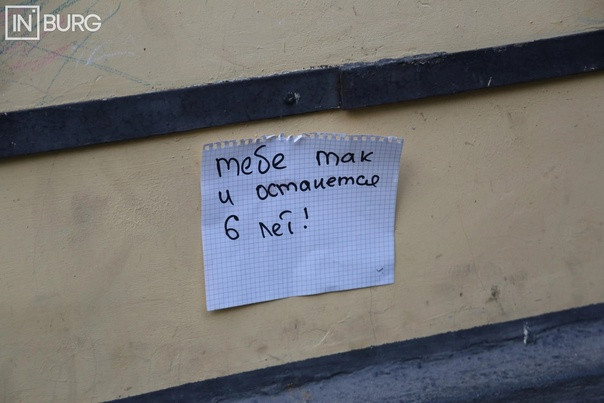 IN BURG
тебе так
и останется
6 лет!